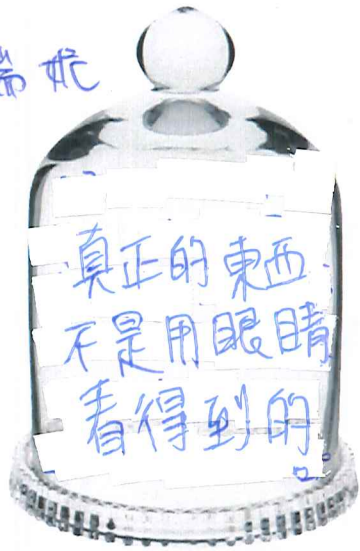 瑞妮
真正的東西
不是用眼睛
看得到的